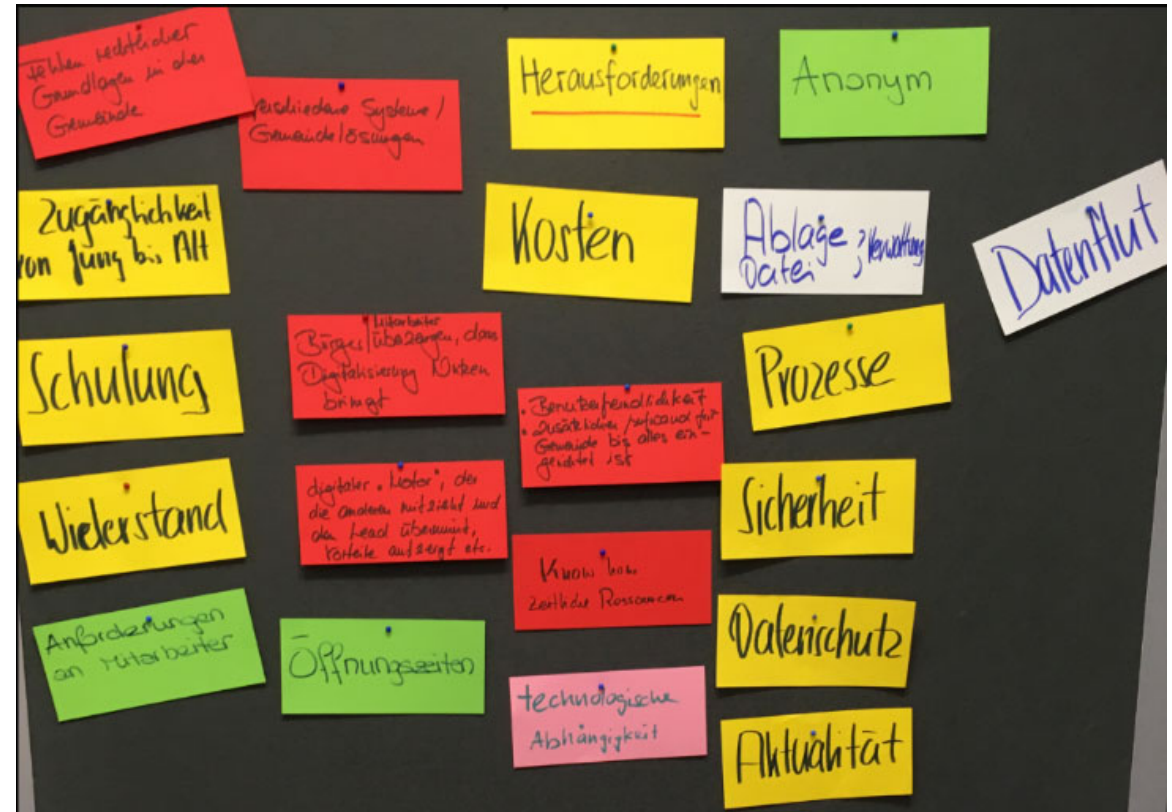 Fehlen rechtlicher
Grundlagen in der
Gemeinde
verschiedene Systeme /
Gemeindelösungen
Herausforderungen
Anonym
Zugänglichkeit
von Jung bis Alt
Kosten
Ablage ; Verwaltung
Datei
Datenflut
Schulung
Bürger/Mitarbeiter überzeugen, dass
Digitalisierung Nutzen
bringt
Prozesse
• Benutzerfeindlichkeit
• zusätzlicher Aufwand für
Gemeinde bis alles ein-
gerichtet ist
Widerstand
digitaler "Motor", der
die anderen mitzieht und
den Lead übernimmt,
Vorteile aufzeigt etc.
Sicherheit
Know how
zeitliche Ressourcen
Anforderungen
an Mitarbeiter
Öffnungszeiten
Datenschutz
technologische
Abhängigkeit
Aktualität